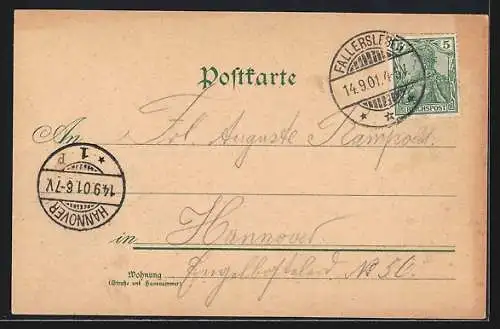 Postkarte
FALLERSLEBEN
14.9.01.4-5V.
5
REICHSPOST
An Frl. Auguste Rampold.
HANNOVER
14.9.01.6-7V.
* 1 P
in Hannover.
Wohnung
(Straße und Hausnummer)
Engelbostelerd. No 50.